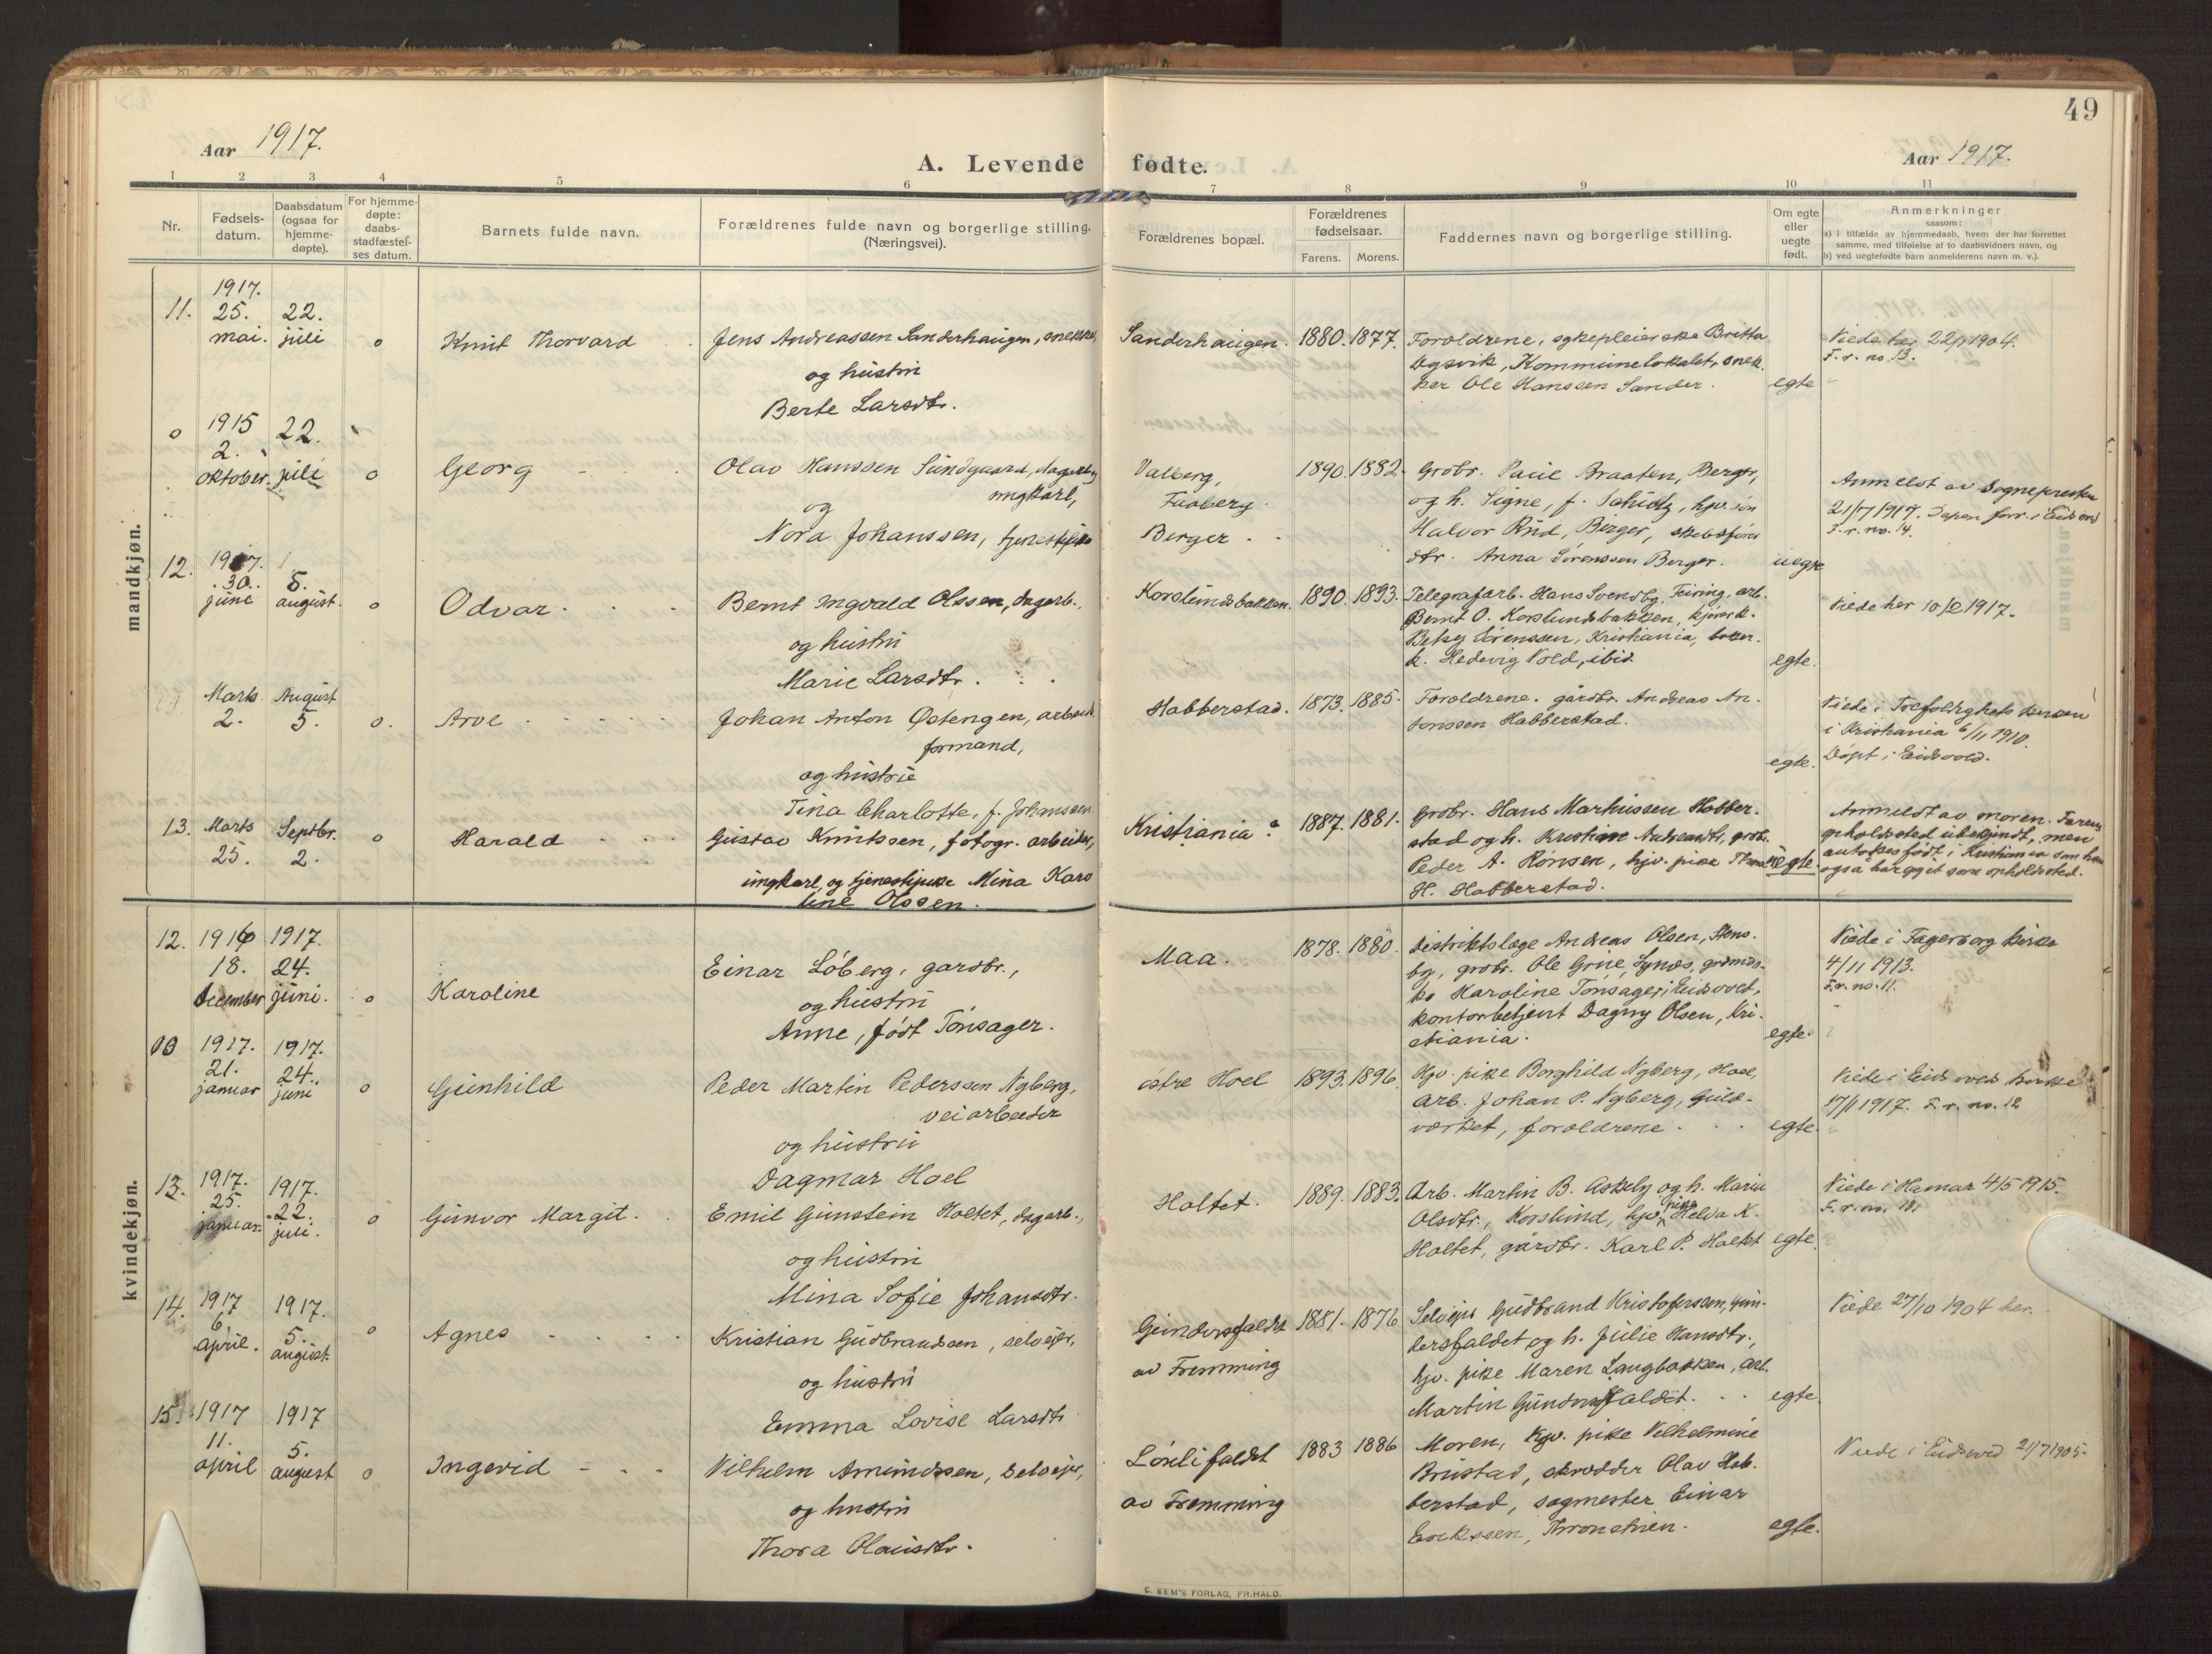 49
Aar 1917.
A. Levende fødte.
Aar 1917.
1 2 3 4 5 6 7 8 9 10 11
Nr.
Fødsels-
datum.
Daabsdatum
(ogsaa for
hjemme-
døpte).
For hjemme-
døpte:
daabs-
stadfæstel-
ses datum.
Barnets fulde navn.
Forældrenes fulde navn og borgerlige stilling.
(Næringsvei).
Forældrenes bopæl.
Forældrenes
fødselsaar.
Farens. Morens.
Faddernes navn og borgerlige stilling.
Om egte
eller
uegte
født.
Anmerkninger
saasom:
a) i tilfælde av hjemmedaab, hvem der har forrettet
samme, med tilføielse af to daabsvidners navn, og
b) ved uegtefødte barn anmelderens navn m. v.).
mandkjøn.
11. 1917. 25. mai. 22. juli o
Knut Thorvard
Jens Andreassen Sanderhaugen, snekker,
og hustru
Berte Larsdtr.
Sanderhaugen. 1880. 1877.
Forældrene, sykepleierske Britta
Dysvik, Kommunelokalet, snek.
ker Ole Hanssen Sander.
egte
Viede her 22/1 1904.
F.r. no 13.
o 1915 2. oktober. 22. juli o
Georg
Olav Hanssen Sundgaard, dagarb.,
ungkarl,
og
Nora Johanssen, tjenestpike
Valberg,
Faaberg.
Berger
1890. 1882.
Grdbr. Paul Braaten, Berger,
og h. Signe, f. Schütz, hjv. søn
Halvor Rud, Birger, skibsfører
dtr. Anna Sørenssen Berger.
uegte
Anmeldt av Sognepresten
21/7 1917.
F.r. no. 14.
12. 1917. 30. juni 5. august. o
Odvar
Bernt Ingvald Olssen, dagarb.,
og hustru
Marie Larsdtr.
Korslundsbakken. 1890. 1893.
Telegrafarb. Hans Svendby, Feiring, arb.
Bernt O. Korslundsbakken, kjøresk.
Betsy Sørenssen, Kristiania,
k. Hedevig Vold, ibid.
egte.
Viede her 10/2 1917.
Marts 2. August 5. o.
Arve
Johan Anton Østengen, arbeids
formand,
og hustru
Tina Charlotte, f. Johanssen
Habberstad. 1873. 1885.
Forældrene. gårdbr. Andreas An.
tonssen Habberstad.
egte.
Viede i Trefoldighets kirken
i Kristiania 6/11 1910.
Døpt i Eidsvold.
13. Marts 25. Septbr. 2. o
Harald
Gustav Knutssen, fotogr. arbeider,
ungkarl, og tjenestpike Mina Karo
line Olssen.
Kristiania? 1887. 1881.
Grdbr. Hans Marthinssen Habber-
stad og h. Kristine Andreasdtr, grdbr.
Peder A. Rønsen, hjv. pike Thora
H. Habberstad.
uegte.
Anmeldt av moren. Farens
opholdssted ubekjendt, men
antakes født i Kristiania som han
også har opgit som opholdssted.
kvindekjøn.
12. 1916 18. december 1917. 24. juni. o
Karoline
Einar Løberg, gardbr.,
og hustru
Anne, født Tønsager.
Maa. 1878. 1880.
Distriktslæge Andreas Olsen, Stens.
by, grdbr. Ole Grue, Synds, grdmds.
ke Karoline Tønsager, Eidsvold,
kontorbetjent Dagny Olsen, Kri-
stiania.
egte.
Viede i Fagerborg kirke
4/11 1913.
F.r. no. 11.
1917. 21. januar 1917. 24. juni o
Gunhild
Peder Martin Pederssen Nyberg,
veiarbeider
og hustru
Dagmar Hoel
østre Hoel 1893. 1896.
Hjv. pike Borghild Nyberg, Hoel,
arb. Johan P. Nyberg, Guld-
verket, forældrene.
egte.
Viede i Eidsvold kirke
17/1 1917. F.r. no. 12
13. 1917. 25. januar. 1917. 22. juli. o
Gunvor Margit.
Emil Gunstein Holtet, dagarb.,
og hustru
Mina Sofie Johansdtr.
Holtet. 1889. 1883.
Arb. Martin B. Askely og h. Maria
Olsdtr., Korslund, hjv. pike Helda K.
Holtet, gårdbr. Karl P. Holtet
egte.
Viede i Hamar 4/5 1915.
F.r. no. 18.
14. 1917 6. april. 1917. 5. august. o
Agnes
Kristian Gudbrandsen, selveier,
og hustru
Emma Lovise Larsdtr
Gundersfaldet
av Fremming
1881. 1876
Selveier Gudbrand Kristoferssen, Gun-
dersfaldet og h. Julie Hansdtr.,
hjv. pike Maren Langbakken, arb.
Martin Gundersfaldet.
egte.
Viede 27/10 1904 her.
15. 1917 11. april 1917 5. august o
Ingerid
Vilhelm Amundssen, selveier,
og hustru
Thora Olausdtr.
Løslifaldet
av Fremming
1883 1886
Moren, hjv. pike Vilhelmine
Brustad, skrædder Olav Hab-
berstad, sagmester Einar
Erikssen, Thronstuen.
egte.
Viede i Eidsvold 21/7 1905.
E. SEM'S FORLAG, FR.HALD.